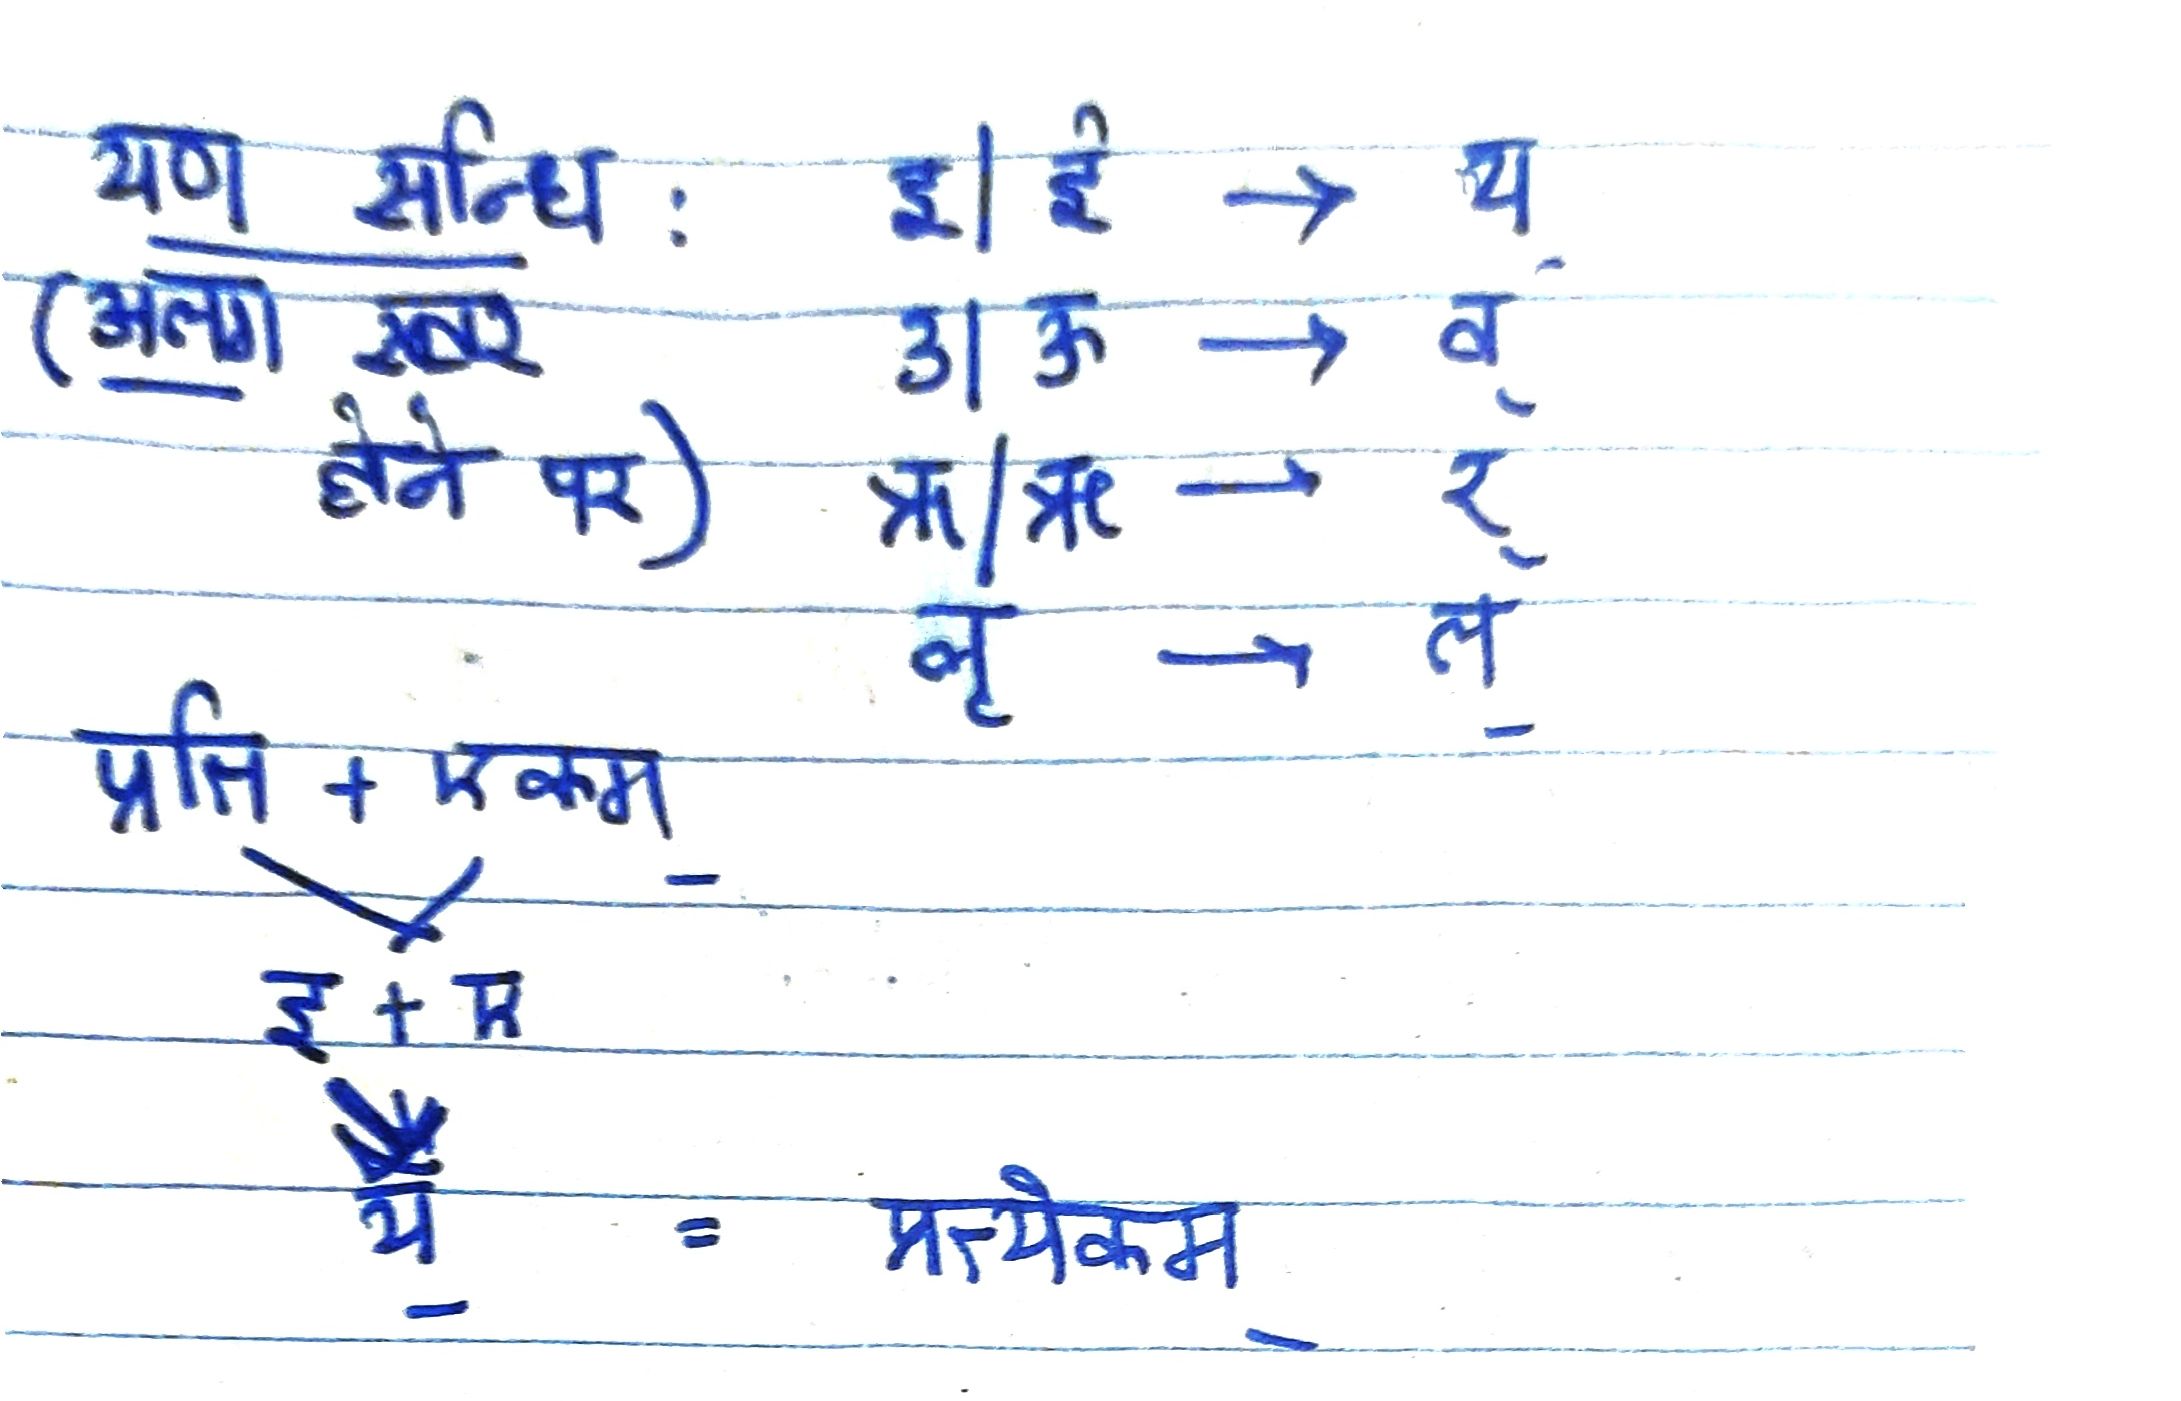 यण सन्धि : इ/ई → य्
(अलग स्वर उ/ऊ → व्
होने पर) ऋ/ॠ → र्
लृ → ल्
प्रति + एकम्
इ + ए
य् = प्रत्येकम्